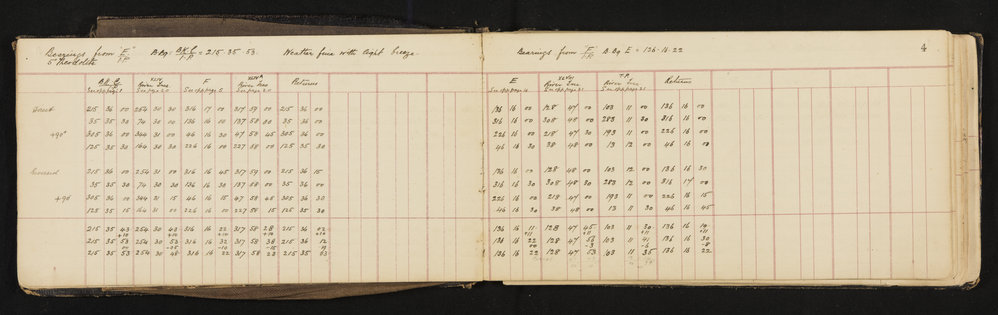 4
Bearings from E/T.P. B.Bg = B.K.C/T.P. = 215·35·53. Weather fine with light breeze
5" Theodolite
B.K.C XLIV River Tree F XLIV A River Tree Returns
See opp page 1 See page 20 See opp page 5 See page 20
Direct 215 36 00 254 30 30 316 17 00 317 59 00 215 36 00
35 35 30 74 30 00 136 16 00 137 58 00 35 36 00
+90° 305 36 00 344 31 00 46 16 30 47 58 45 305 36 00
125 35 30 164 30 30 226 16 00 227 58 00 125 35 30
Reversed 215 36 00 254 31 00 316 16 45 317 59 00 215 36 15
35 35 30 74 30 30 136 16 30 137 58 00 35 36 00
+90 305 36 00 344 31 15 46 16 15 47 58 45 305 36 30
125 35 15 164 31 00 226 16 00 227 58 15 125 35 30
215 35 43 254 30 43 316 16 22 317 58 28 215 36 02
+10 +10 +10 +10 +10
215 35 53 254 30 53 316 16 32 317 58 38 215 36 12
215 35 53 254 30 48 316 16 22 317 58 23 215 35 53
Bearings from F/T.P. B.Bg E = 136·16·22
E River Tree T.P. River Tree Returns
136 16 00 128 47 00 103 11 00 136 16 00
316 16 00 308 48 00 283 11 30 316 16 00
226 16 00 218 47 30 193 11 00 226 16 00
46 16 30 38 48 00 13 12 00 46 16 00
136 16 00 128 48 00 103 12 00 136 16 30
316 16 30 308 48 30 283 12 00 316 17 00
226 16 00 218 47 00 193 11 00 226 16 15
46 16 30 38 48 00 13 11 30 46 16 45
136 16 11 128 47 45 103 11 30 136 16 19
+11 +11 +11 +11
136 16 22 128 47 56 103 11 41 136 16 30
00 -3 -6 -8
136 16 22 128 47 53 103 11 35 136 16 22